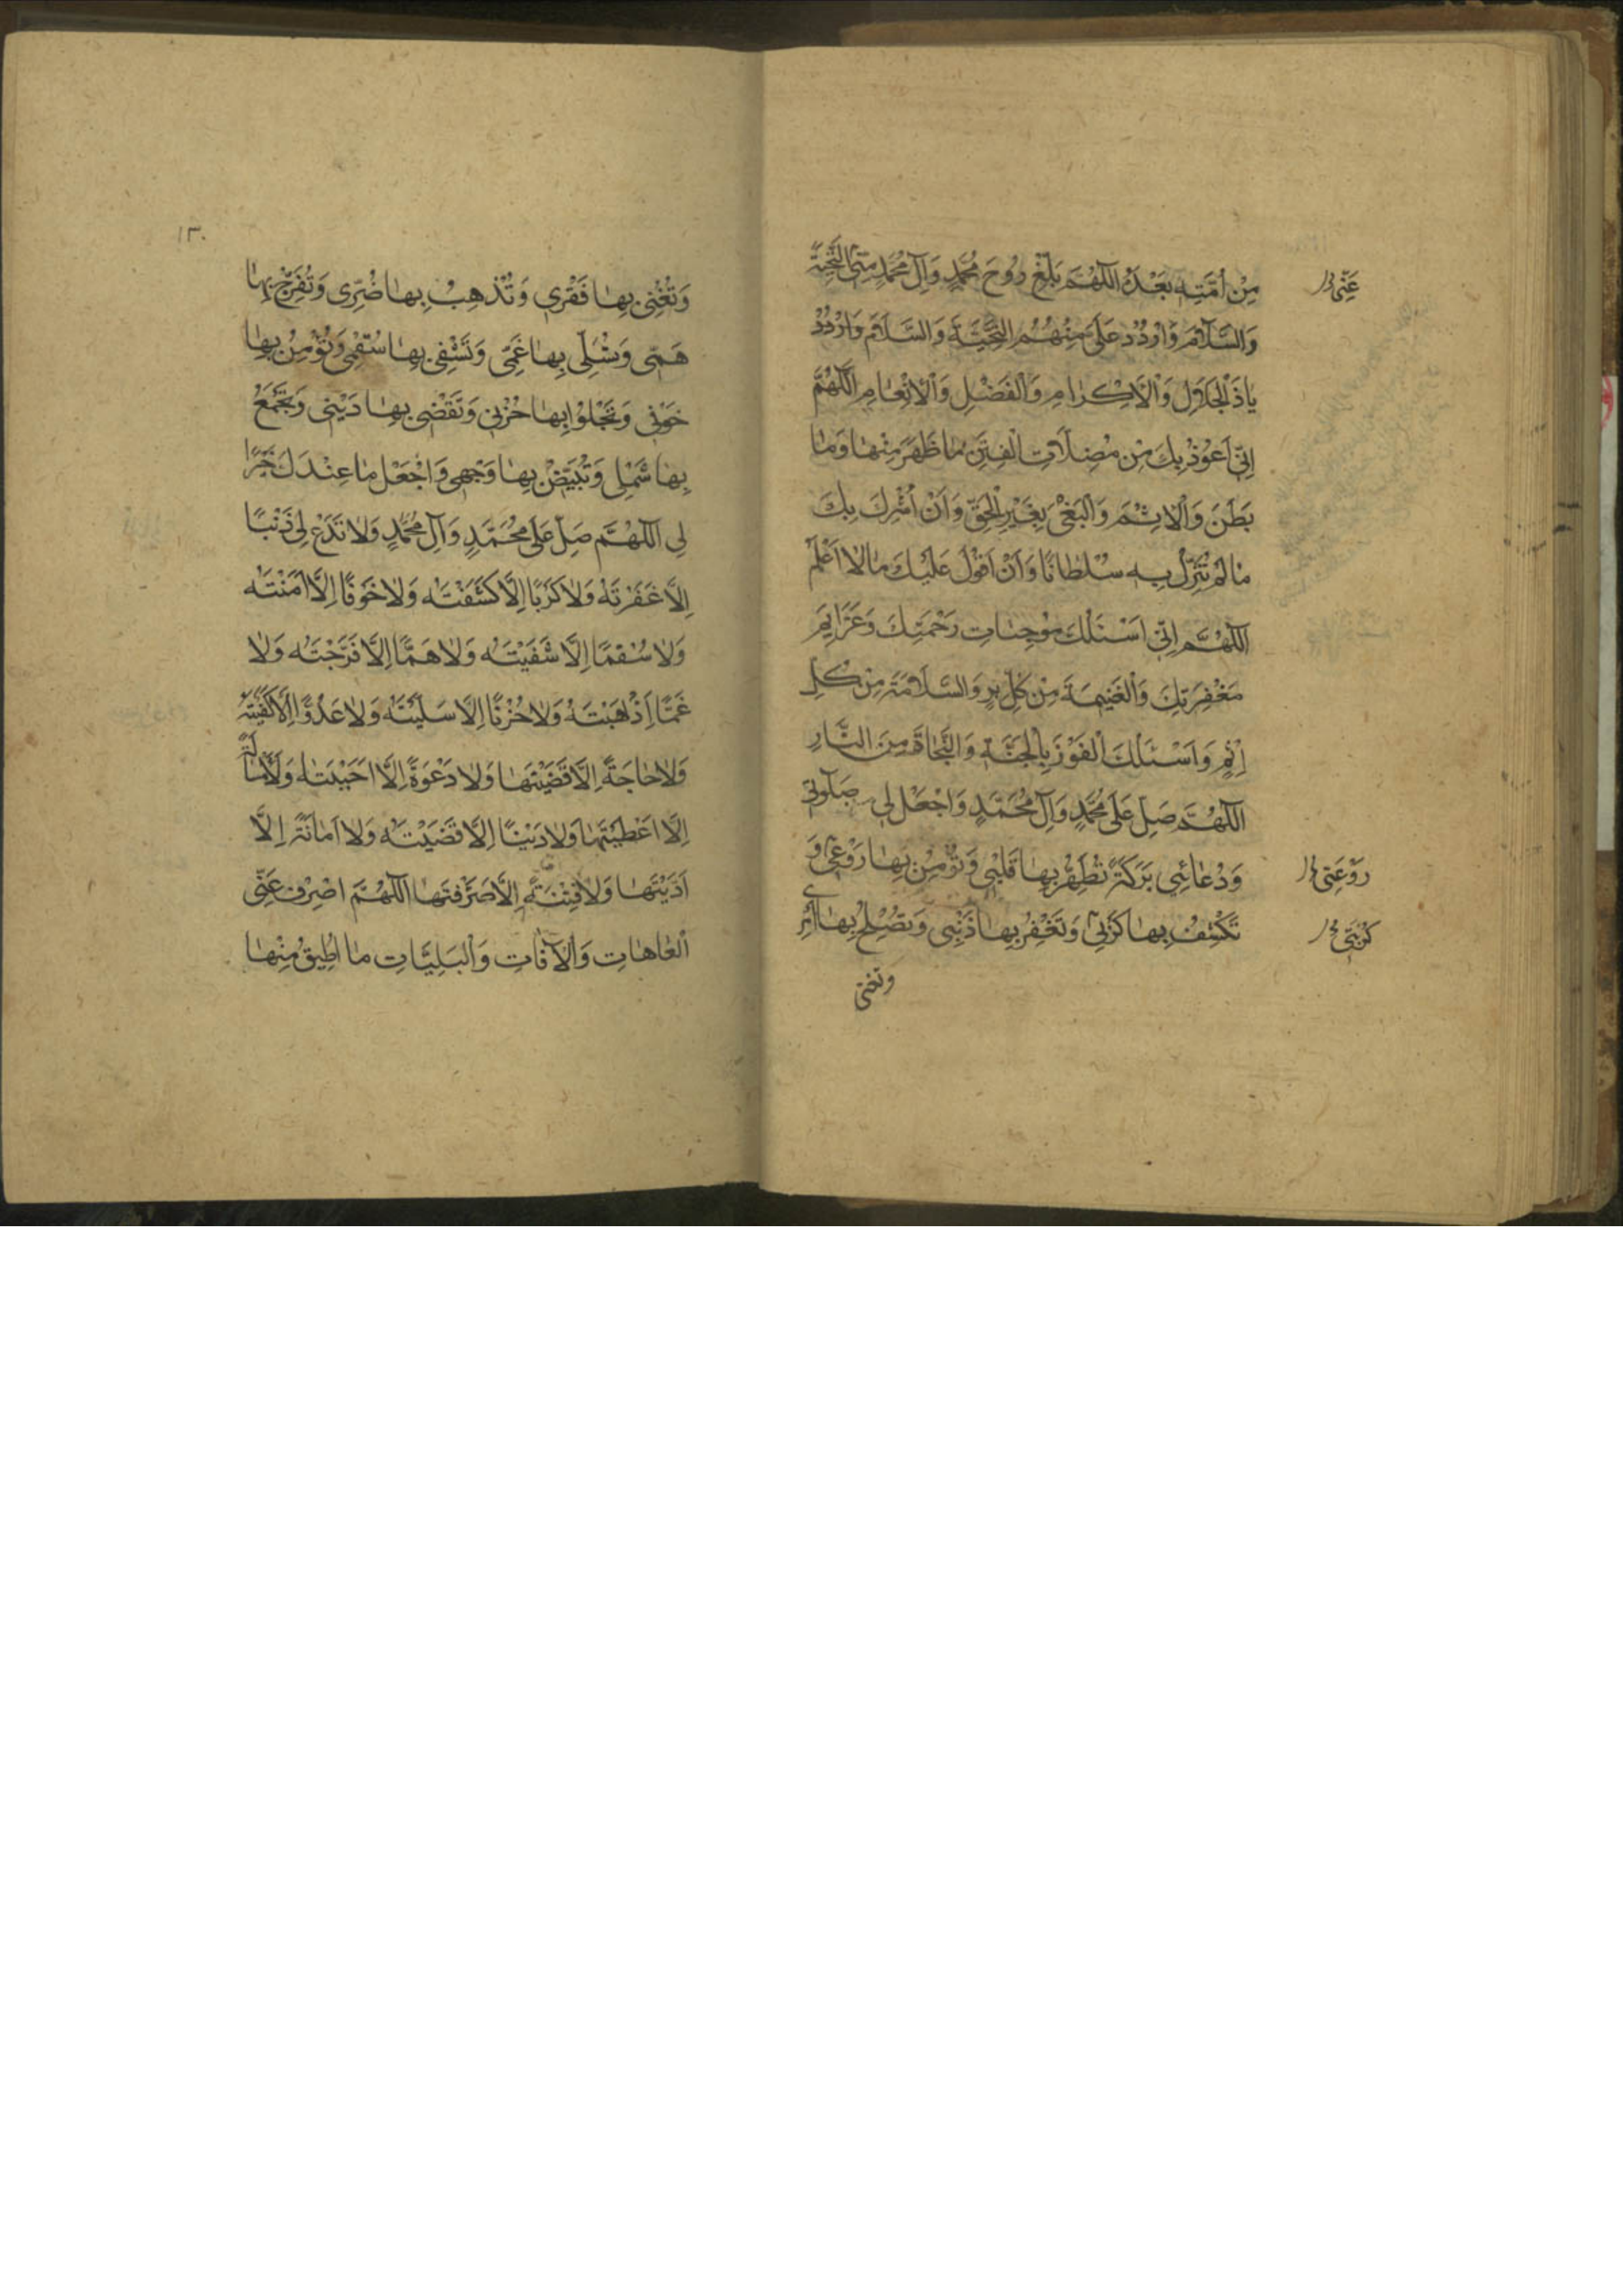 مِنْ اُمَّتِهِ بَعْدَهُ اَللّٰهُمَّ بَلِّغْ رُوحَ مُحَمَّدٍ وَآلِ مُحَمَّدٍ مِنِّى التَّحِيَّةَ
عَنِّى
وَالسَّلَامَ وَارْدُدْ عَلَىَّ مِنْهُمُ التَّحِيَّةَ وَالسَّلَامَ وَارْدُدْ
يَاذَالْجَلَالِ وَالْاِكْرَامِ وَالْفَضْلِ وَالْاِنْعَامِ اَللّٰهُمَّ
اِنِّى اَعُوْذُ بِكَ مِنْ مُضِلَّاتِ الْفِتَنِ مَا ظَهَرَ مِنْهَا وَمَا
بَطَنَ وَالْاِثْمَ وَالْبَغْىَ بِغَيْرِ الْحَقِّ وَاَنْ اُشْرِكَ بِكَ
مَا لَمْ تُنَزِّلْ بِهِ سُلْطَانًا وَاَنْ اَقُوْلَ عَلَيْكَ مَا لَا اَعْلَمُ
اَللّٰهُمَّ اِنِّى اَسْئَلُكَ مُوْجِبَاتِ رَحْمَتِكَ وَعَزَايِمَ
مَغْفِرَتِكَ وَالْغَنِيمَةَ مِنْ كُلِّ بِرٍّ وَالسَّلَامَةَ مِنْ كُلِّ
اِثْمٍ وَاَسْئَلُكَ الْفَوْزَ بِالْجَنَّةِ وَالنَّجَاةَ مِنَ النَّارِ
اَللّٰهُمَّ صَلِّ عَلَى مُحَمَّدٍ وَآلِ مُحَمَّدٍ وَاجْعَلْ لِى صَلَوتِى
وَدُعَائِى بَرَكَةً تُطَهِّرُ بِهَا قَلْبِى وَتُؤْمِنُ بِهَا رَوْعِى وَ
رَوْعَتِى
تَكْشِفُ بِهَا كَرْبِى وَتَغْفِرُ بِهَا ذَنْبِى وَتُصْلِحُ بِهَا اَمْرِى
كُرْبَتِى
وتغنى
١٣٠
وَتُغْنِى بِهَا فَقْرِى وَتُذْهِبُ بِهَا ضُرِّى وَتُفَرِّجُ بِهَا
هَمِّى وَتُسَلِّى بِهَا غَمِّى وَتَشْفِى بِهَا سُقْمِى وَتُؤْمِنُ بِهَا
خَوْفِى وَتَجْلُوْا بِهَا حُزْنِى وَتَقْضِى بِهَا دَيْنِى وَتَجْمَعُ
بِهَا شَمْلِى وَتُبَيِّضُ بِهَا وَجْهِى وَاجْعَلْ مَا عِنْدَكَ خَيْرًا
لِى اَللّٰهُمَّ صَلِّ عَلَى مُحَمَّدٍ وَآلِ مُحَمَّدٍ وَلَا تَدَعْ لِى ذَنْبًا
اِلَّا غَفَرْتَهُ وَلَا كَرْبًا اِلَّا كَشَفْتَهُ وَلَا خَوْفًا اِلَّا آمَنْتَهُ
وَلَا سُقْمًا اِلَّا شَفَيْتَهُ وَلَا هَمًّا اِلَّا فَرَّجْتَهُ وَلَا
غَمًّا اِلَّا اَذْهَبْتَهُ وَلَا حُزْنًا اِلَّا سَلَّيْتَهُ وَلَا عَدُوًّا اِلَّا كَفَيْتَهُ
وَلَا حَاجَةً اِلَّا قَضَيْتَهَا وَلَا دَعْوَةً اِلَّا اَجَبْتَهَا وَلَا مَسْأَلَةً
اِلَّا اَعْطَيْتَهَا وَلَا دَيْنًا اِلَّا قَضَيْتَهُ وَلَا اَمَانَةً اِلَّا
اَدَّيْتَهَا وَلَا فِتْنَةً اِلَّا صَرَفْتَهَا اَللّٰهُمَّ اصْرِفْ عَنِّى
الْعَاهَاتِ وَالْآفَاتِ وَالْبَلِيَّاتِ مَا اُطِيقُ مِنْهَا